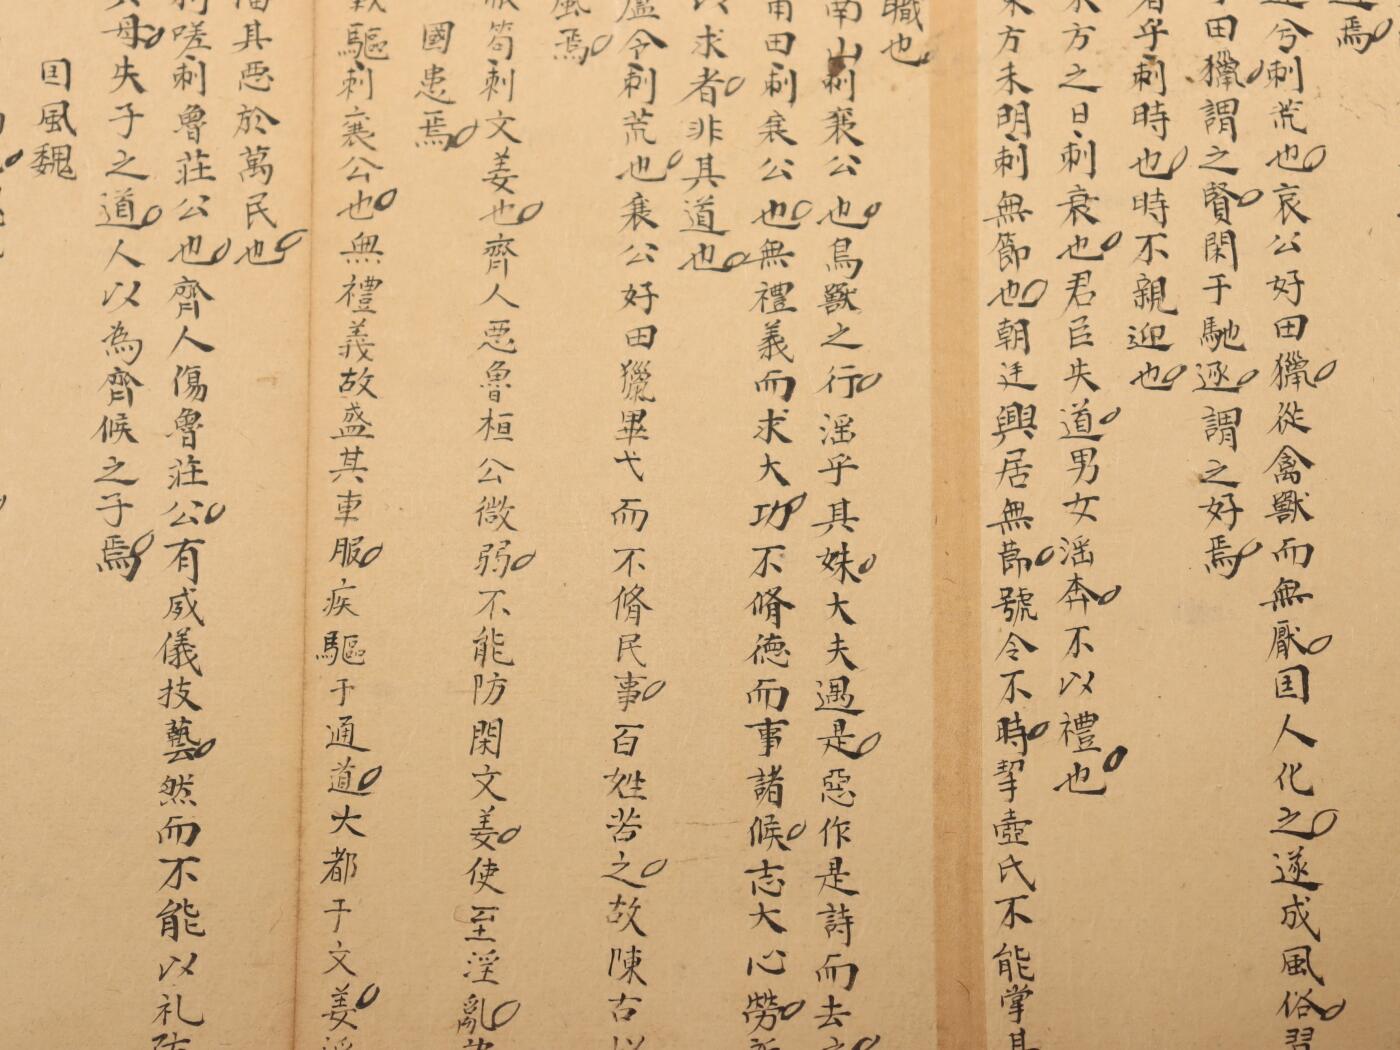 焉
還兮刺荒也哀公好田獵従禽獸而無厭囯人化之遂成風俗習
于田獵謂之賢閑于馳逐謂之好焉
著乎刺時也時不親迎也
東方之日刺衰也君臣失道男女滛奔不以禮也
東方未明刺無節也朝廷興居無莭號令不時挈壺氏不能掌其
職也
南山刺襄公也鳥獸之行滛乎其妹大夫遇是惡作是詩而去之
甫田刺襄公也無禮義而求大功不脩德而事諸候志大心勞所
以求者非其道也
盧令刺荒也襄公好田獵畢弋而不脩民事百姓苦之故陳古以
風焉
敝笱刺文姜也齊人悪魯桓公微弱不能防閑文姜使至淫亂為
國患焉
載驅刺襄公也無禮義故盛其車服疾驅于通道大都于文姜淫
播其悪於萬民也
猗嗟刺魯莊公也齊人傷魯莊公有威儀技藝然而不能以礼防
其母失子之道人以為齊候之子焉
囯風魏